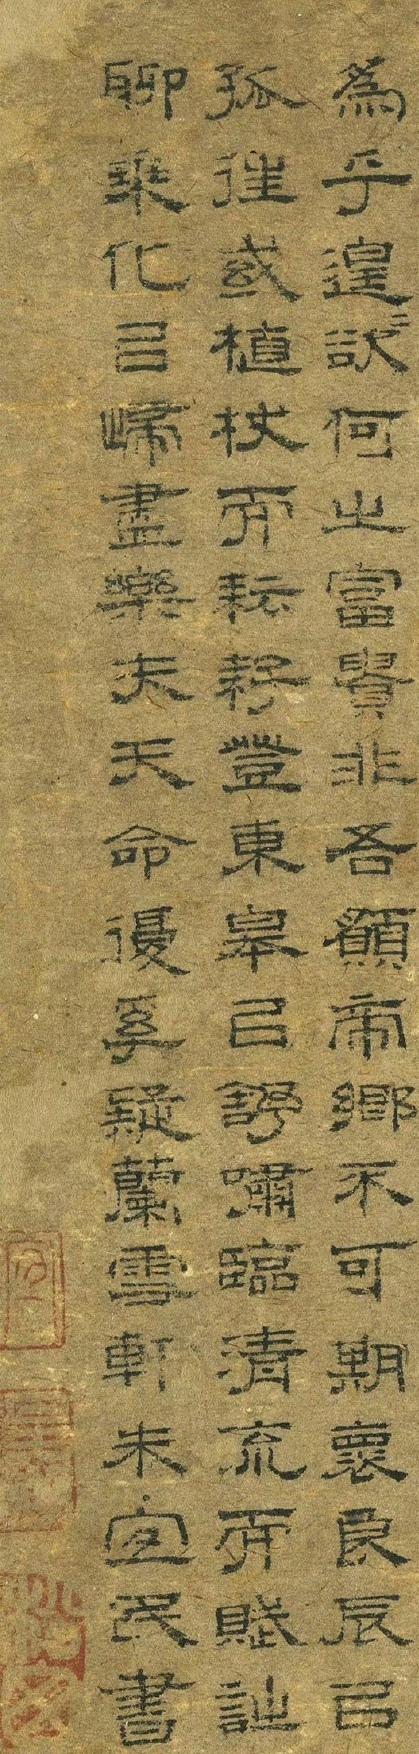 為乎遑〻欲何之富貴非吾願帝鄉不可期褱良辰㠯
孤往或植杖而耘耔登東皋㠯舒嘯臨清流而賦詩
聊乘化㠯歸盡樂夫天命復奚疑蘭雪軒朱宜民書